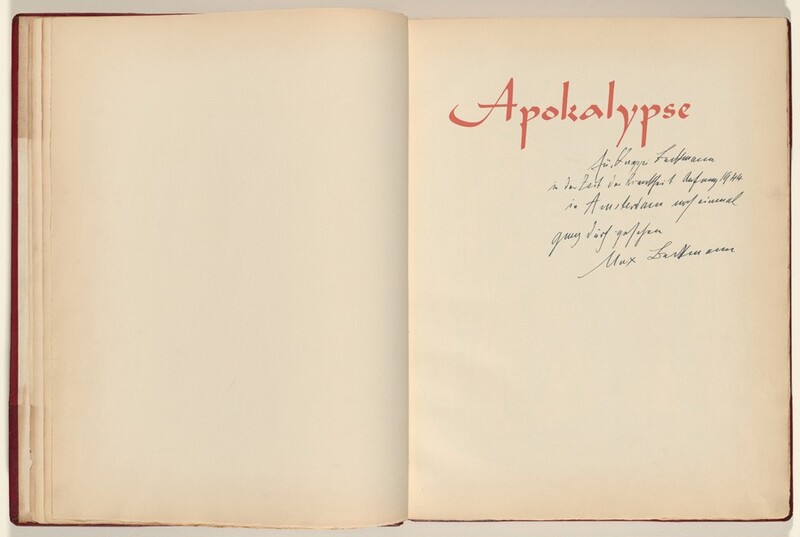 Apokalypse
Für Quappi Beckmann
in der Zeit der Krankheit Anfang 1944
in Amsterdam noch einmal
ganz durchgesehen
Max Beckmann